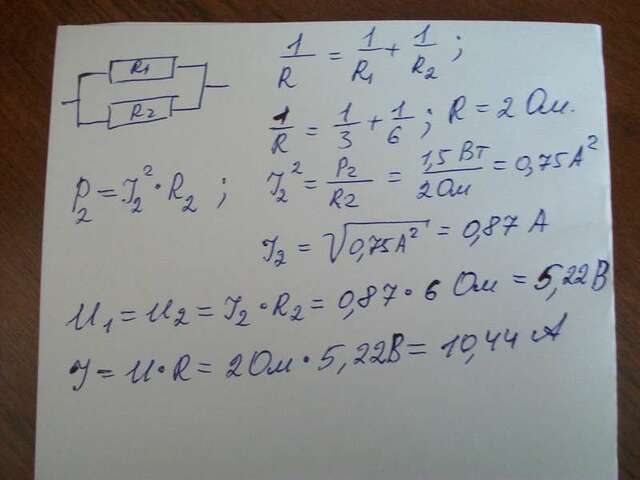 R1
R2
1/R = 1/R1 + 1/R2 ;
1/R = 1/3 + 1/6 ; R = 2 Ом.
P2 = I2² · R2 ; I2² = P2/R2 = 1,5 Вт/2 Ом = 0,75 А²
I2 = √0,75 А² = 0,87 А
U1 = U2 = I2 · R2 = 0,87 · 6 Ом = 5,22 В
I = U · R = 2 Ом · 5,22 В = 10,44 А